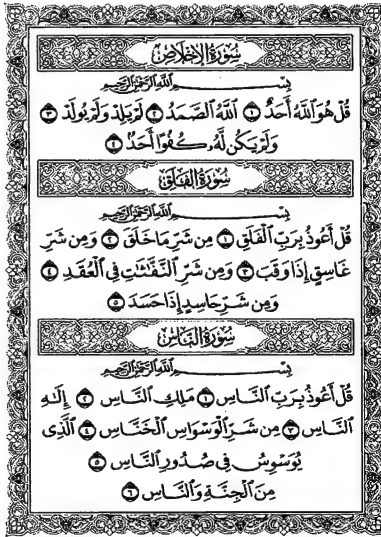 سُورَةُ الإِخْلَاصِ
بِسْمِ اللَّهِ الرَّحْمَٰنِ الرَّحِيمِ
قُلْ هُوَ اللَّهُ أَحَدٌ ١ اللَّهُ الصَّمَدُ ٢ لَمْ يَلِدْ وَلَمْ يُولَدْ ٣
وَلَمْ يَكُن لَّهُ كُفُوًا أَحَدٌ ٤
سُورَةُ الفَلَقِ
بِسْمِ اللَّهِ الرَّحْمَٰنِ الرَّحِيمِ
قُلْ أَعُوذُ بِرَبِّ الْفَلَقِ ١ مِن شَرِّ مَا خَلَقَ ٢ وَمِن شَرِّ
غَاسِقٍ إِذَا وَقَبَ ٣ وَمِن شَرِّ النَّفَّٰثَٰتِ فِي الْعُقَدِ ٤
وَمِن شَرِّ حَاسِدٍ إِذَا حَسَدَ ٥
سُورَةُ النَّاسِ
بِسْمِ اللَّهِ الرَّحْمَٰنِ الرَّحِيمِ
قُلْ أَعُوذُ بِرَبِّ النَّاسِ ١ مَلِكِ النَّاسِ ٢ إِلَٰهِ
النَّاسِ ٣ مِن شَرِّ الْوَسْوَاسِ الْخَنَّاسِ ٤ الَّذِى
يُوَسْوِسُ فِى صُدُورِ النَّاسِ ٥
مِنَ الْجِنَّةِ وَالنَّاسِ ٦